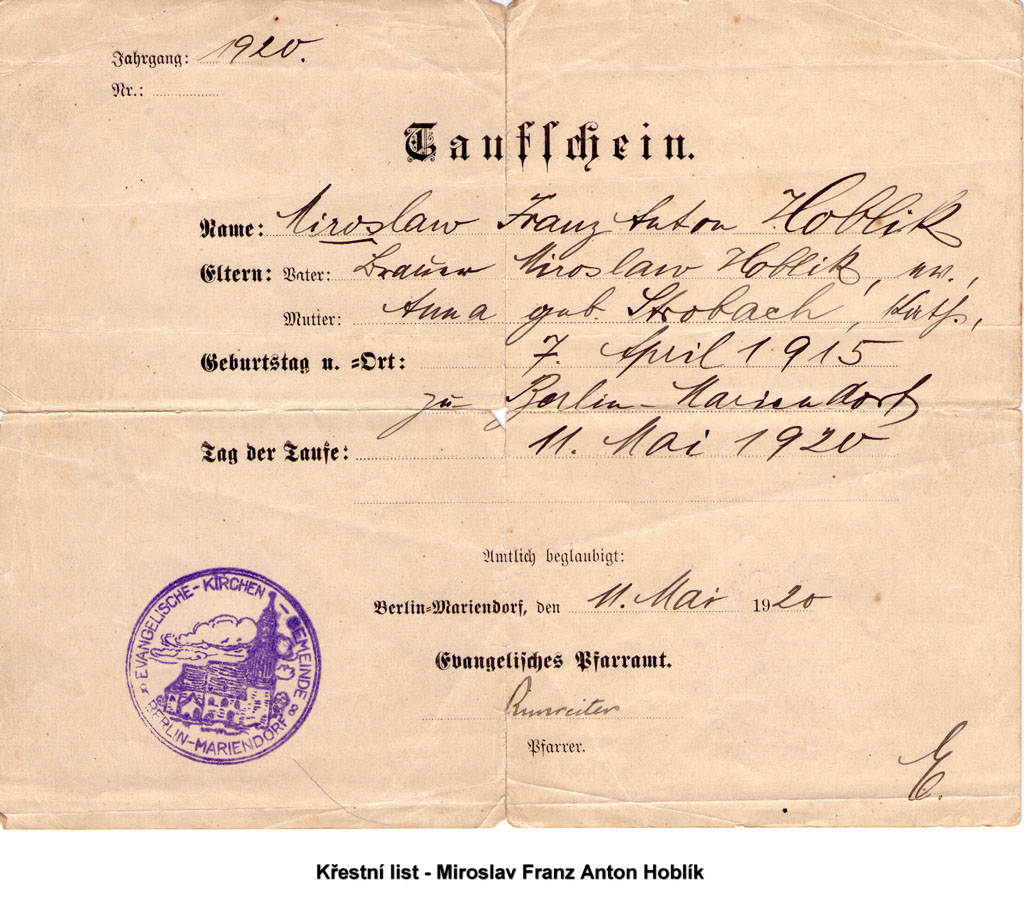 Jahrgang: 1920.
Nr.:
Taufschein.
Name: Miroslaw Franz Anton Hoblik
Eltern: Vater: Brauer Miroslaw Hoblik, ev.,
Mutter: Anna geb. Strobach, kath.,
Geburtstag u. =Ort: 7. April 1915
zu Berlin-Mariendorf
Tag der Taufe: 11. Mai 1920
Amtlich beglaubigt:
Berlin=Mariendorf, den 11. Mai 1920
Evangelisches Pfarramt.
Pfarrer.
E.
EVANGELISCHE-KIRCHEN-GEMEINDE
BERLIN-MARIENDORF
Křestní list - Miroslav Franz Anton Hoblík